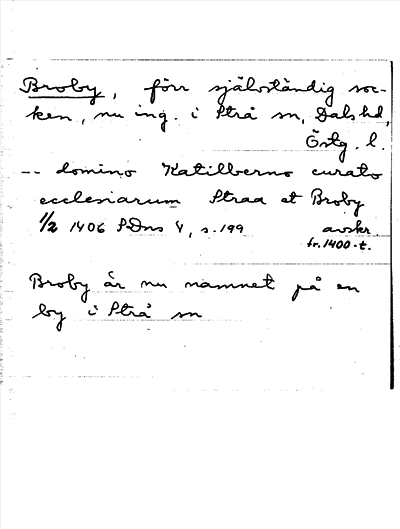 Broby, förr självständig soc-
ken, nu ing. i Strå sn, Dals hd,
Östg. l.
-- domino Katilberno curato
ecclesiarum Straa et Broby
1/2 1406 SDns 1, s. 199 avskr.
fr. 1400-t.
Broby är nu namnet på en
by i Strå sn